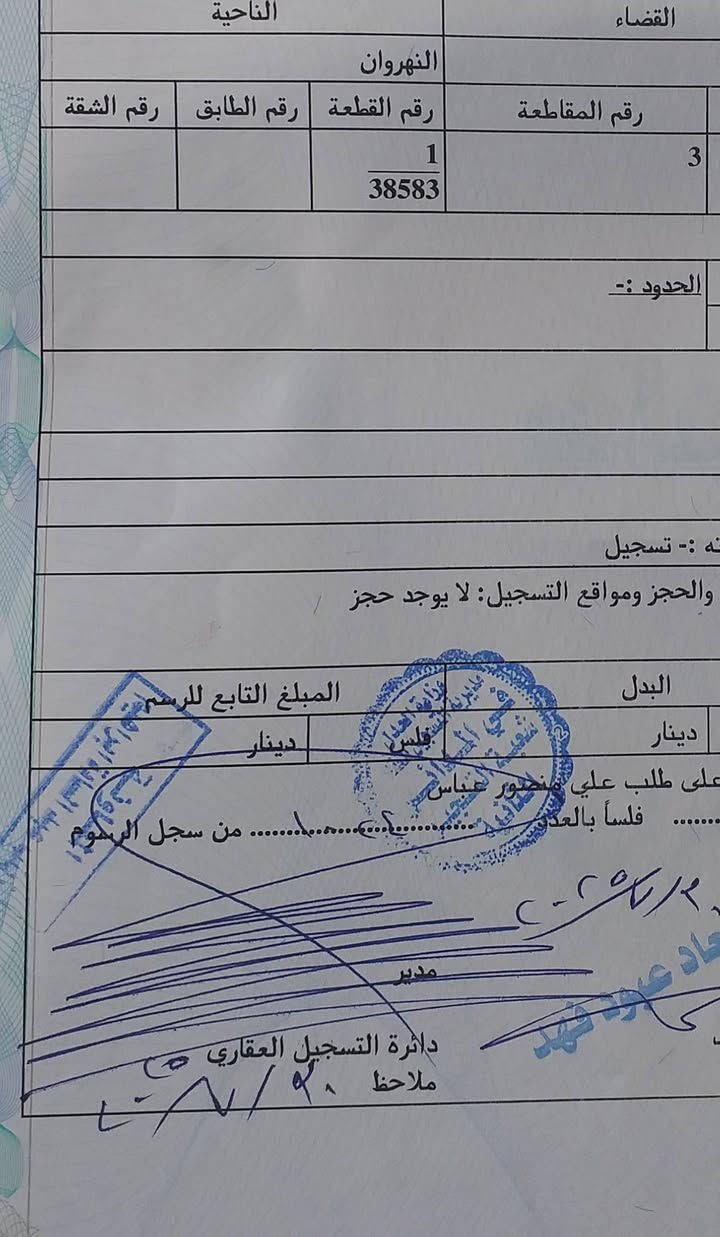 القضاء الناحية
النهروان
رقم المقاطعة رقم القطعة رقم الطابق رقم الشقة
3 1
38583
الحدود :-
ته :- تسجيل
والحجز ومواقع التسجيل: لا يوجد حجز
البدل المبلغ التابع للرسم
دينار فلس دينار
على طلب علي منصور عباس
فلساً بالعدد من سجل الرسوم
عبود فهد
مدير
دائرة التسجيل العقاري
ملاحظ